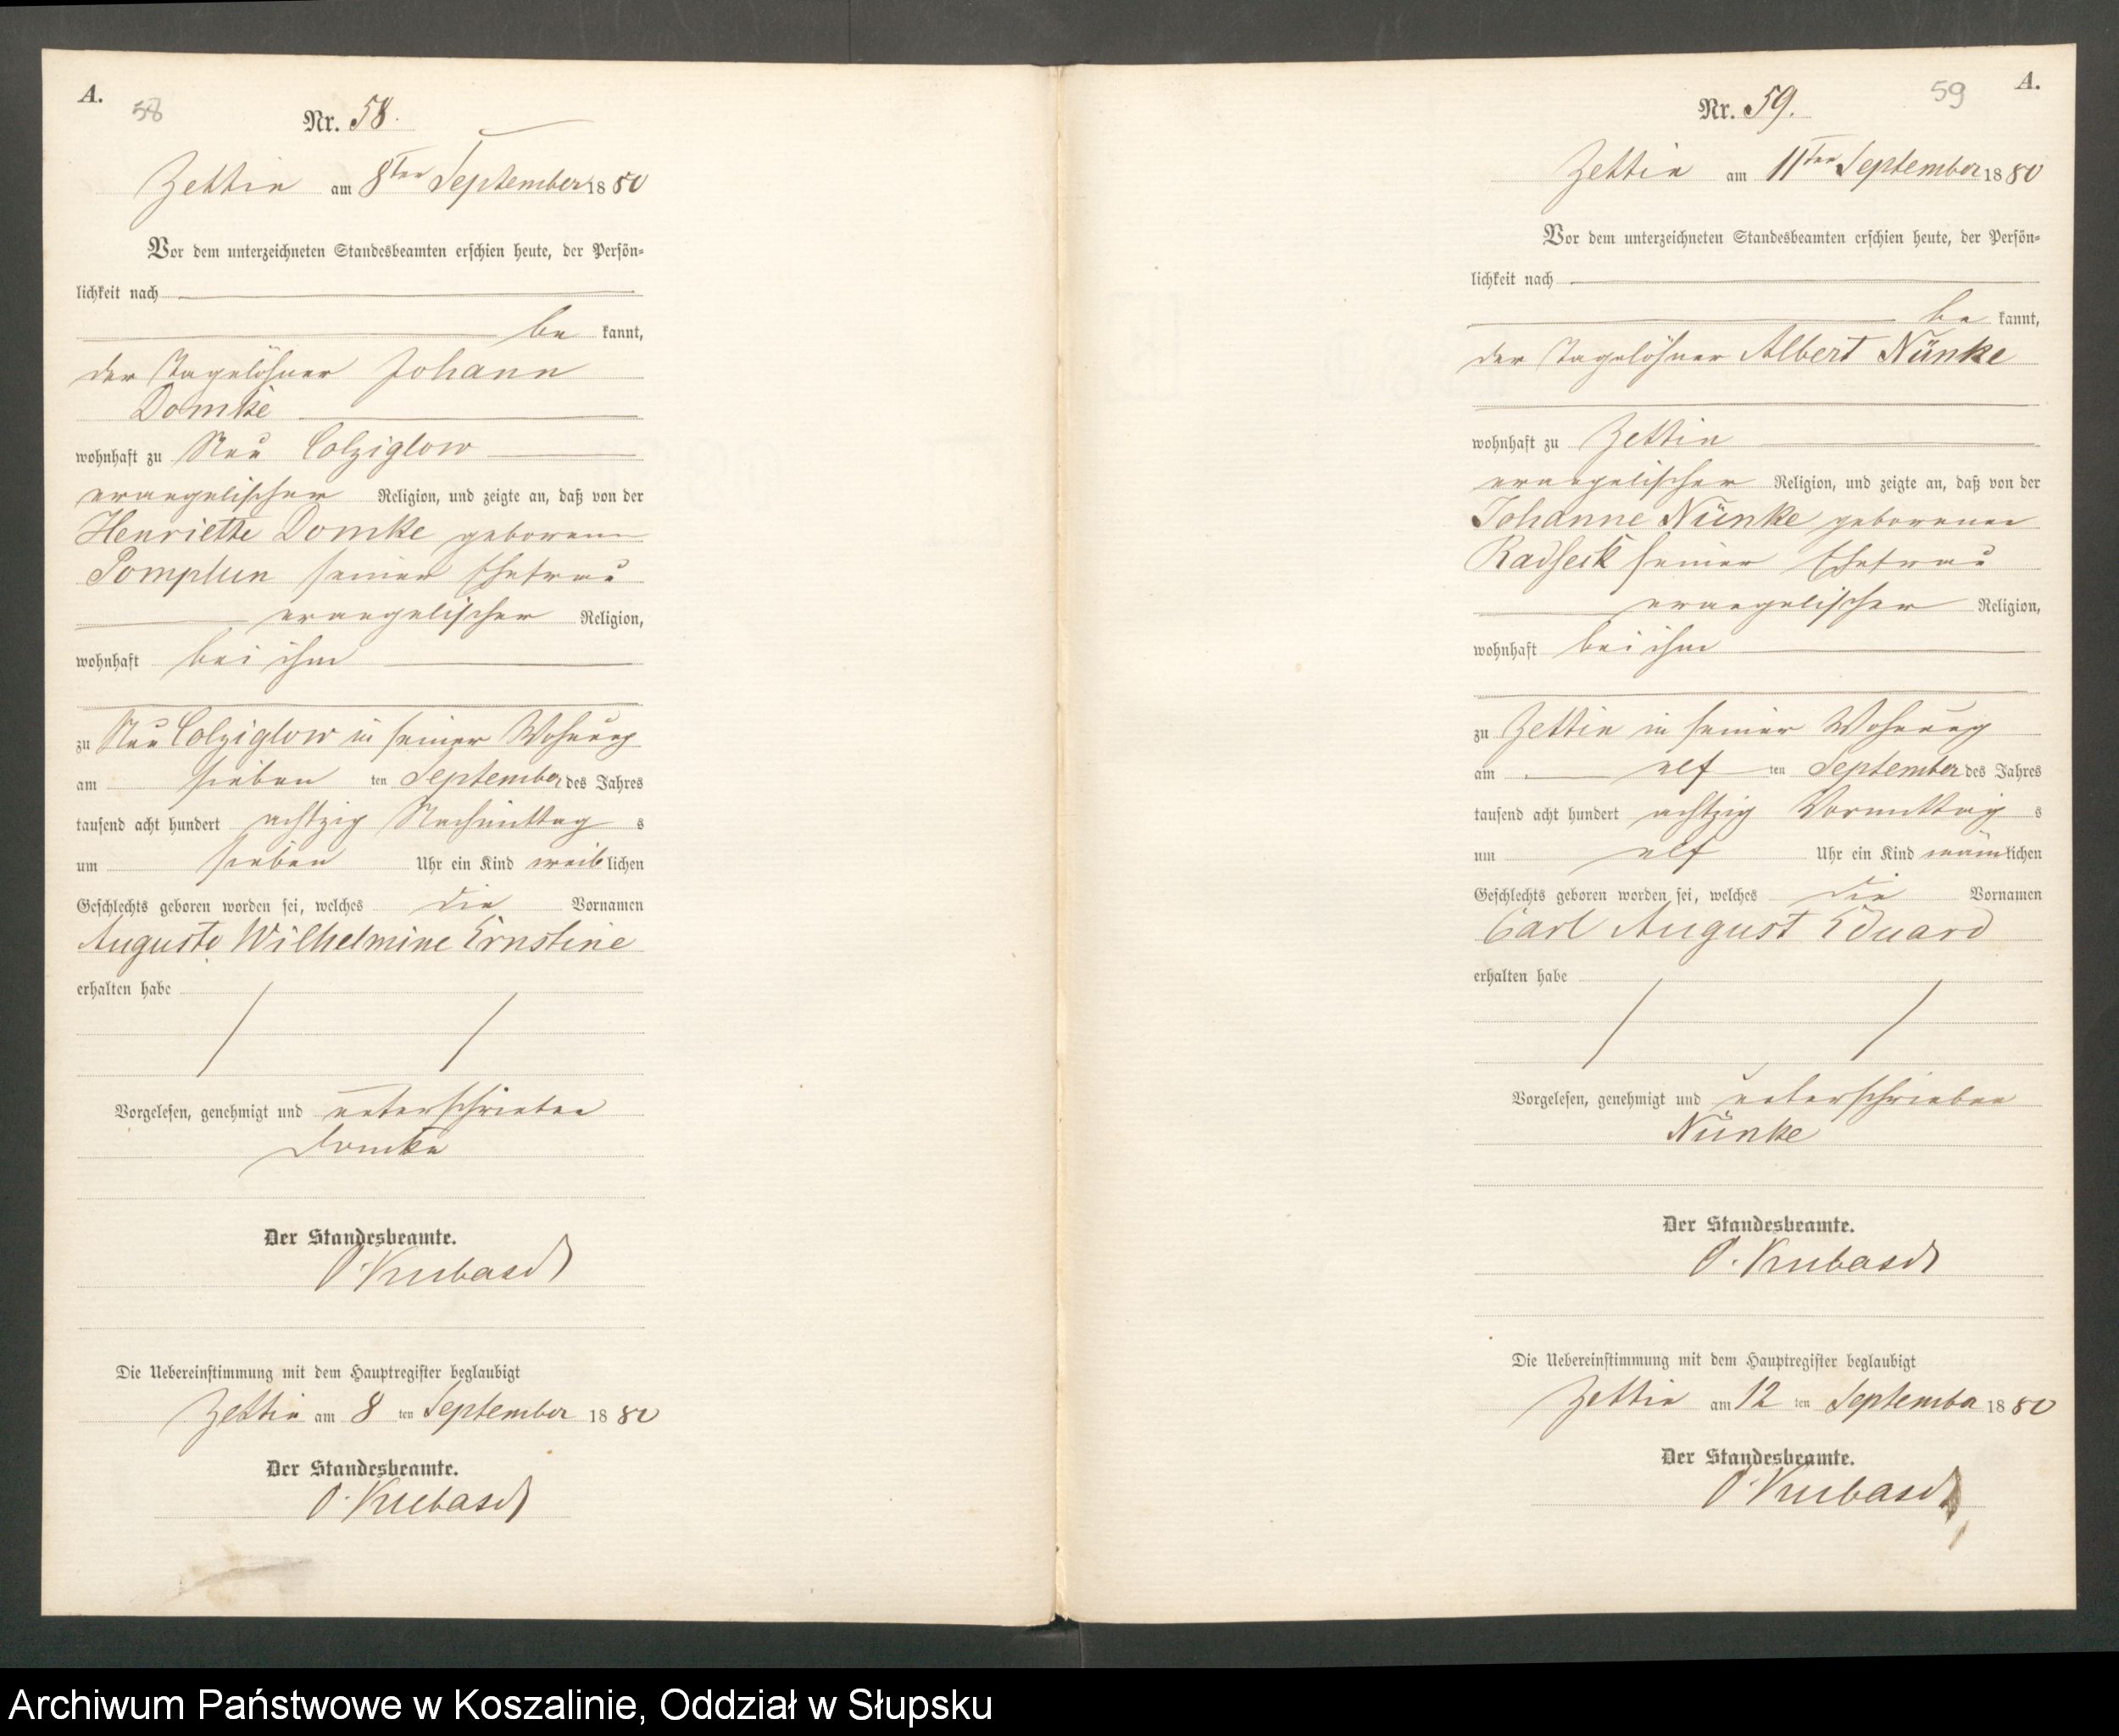 A.
58
Nr. 58.
Zettin am 8ten September 1880
Vor dem unterzeichneten Standesbeamten erschien heute, der Persön-
lichkeit nach
be kannt,
der Tagelöhner Johann
Domke
wohnhaft zu Neu Colziglow
evangelischer Religion, und zeigte an, daß von der
Henriette Domke geborene
Pomplun seiner Ehefrau
evangelischer Religion,
wohnhaft bei ihm
zu Neu Colziglow in seiner Wohnung
am sieben ten September des Jahres
tausend acht hundert achtzig Nachmittag s
um sieben Uhr ein Kind weiblichen
Geschlechts geboren worden sei, welches die Vornamen
Auguste Wilhelmine Ernstine
erhalten habe
Vorgelesen, genehmigt und unterschrieben
Domke
Der Standesbeamte.
O. Kubasch
Die Uebereinstimmung mit dem Hauptregister beglaubigt
Zettin am 8 ten September 1880
Der Standesbeamte.
O. Kubasch
59
A.
Nr. 59.
Zettin am 11ten September 1880
Vor dem unterzeichneten Standesbeamten erschien heute, der Persön-
lichkeit nach
be kannt,
der Tagelöhner Albert Nünke
wohnhaft zu Zettin
evangelischer Religion, und zeigte an, daß von der
Johanne Nünke geborenen
Radseck seiner Ehefrau
evangelischer Religion,
wohnhaft bei ihm
zu Zettin in seiner Wohnung
am elf ten September des Jahres
tausend acht hundert achtzig Vormittag s
um elf Uhr ein Kind männlichen
Geschlechts geboren worden sei, welches die Vornamen
Carl August Eduard
erhalten habe
Vorgelesen, genehmigt und unterschrieben
Nünke
Der Standesbeamte.
O. Kubasch
Die Uebereinstimmung mit dem Hauptregister beglaubigt
Zettin am 12 ten September 1880
Der Standesbeamte.
O. Kubasch
Archiwum Państwowe w Koszalinie, Oddział w Słupsku